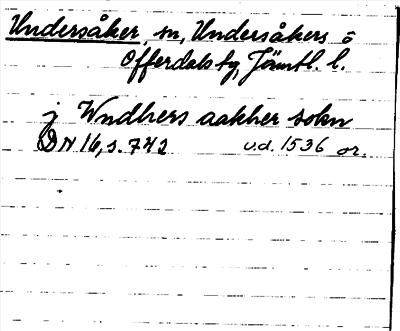 Undersåker, sn, Undersåkers o
Offerdals tg, Jämtl. l.
j Wndhers aakher sokn
DN 16, s. 742 u.d. 1536 or.